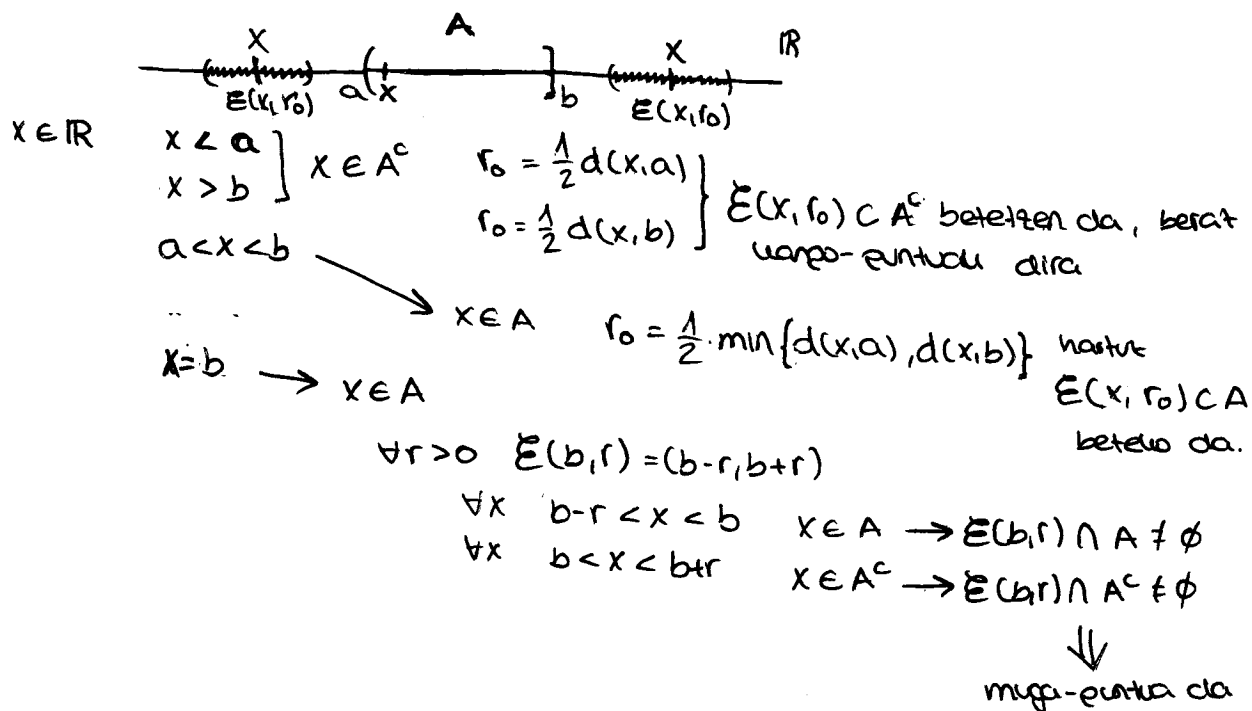 A
x x ℝ
E(x,r₀) a x b E(x,r₀)
x ∈ ℝ x < a
x > b ] x ∈ Aᶜ r₀ = 1/2 d(x,a)
r₀ = 1/2 d(x,b) } E(x,r₀) ⊂ Aᶜ betetzen da, beraz
kanpo-puntuak dira
a < x < b → x ∈ A r₀ = 1/2 · min{d(x,a), d(x,b)} hartuz
E(x,r₀) ⊂ A
beteko da.
x = b → x ∈ A
∀r > 0 E(b,r) = (b-r, b+r)
∀x b-r < x < b x ∈ A → E(b,r) ∩ A ≠ ∅
∀x b < x < b+r x ∈ Aᶜ → E(b,r) ∩ Aᶜ ≠ ∅
⇓
muga-puntua da